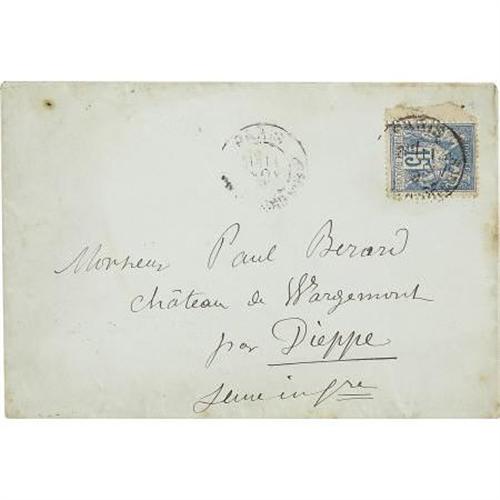 PARIS
PARIS
15
Monsieur Paul Berard
château de Wargemont
par Dieppe
Seine infre